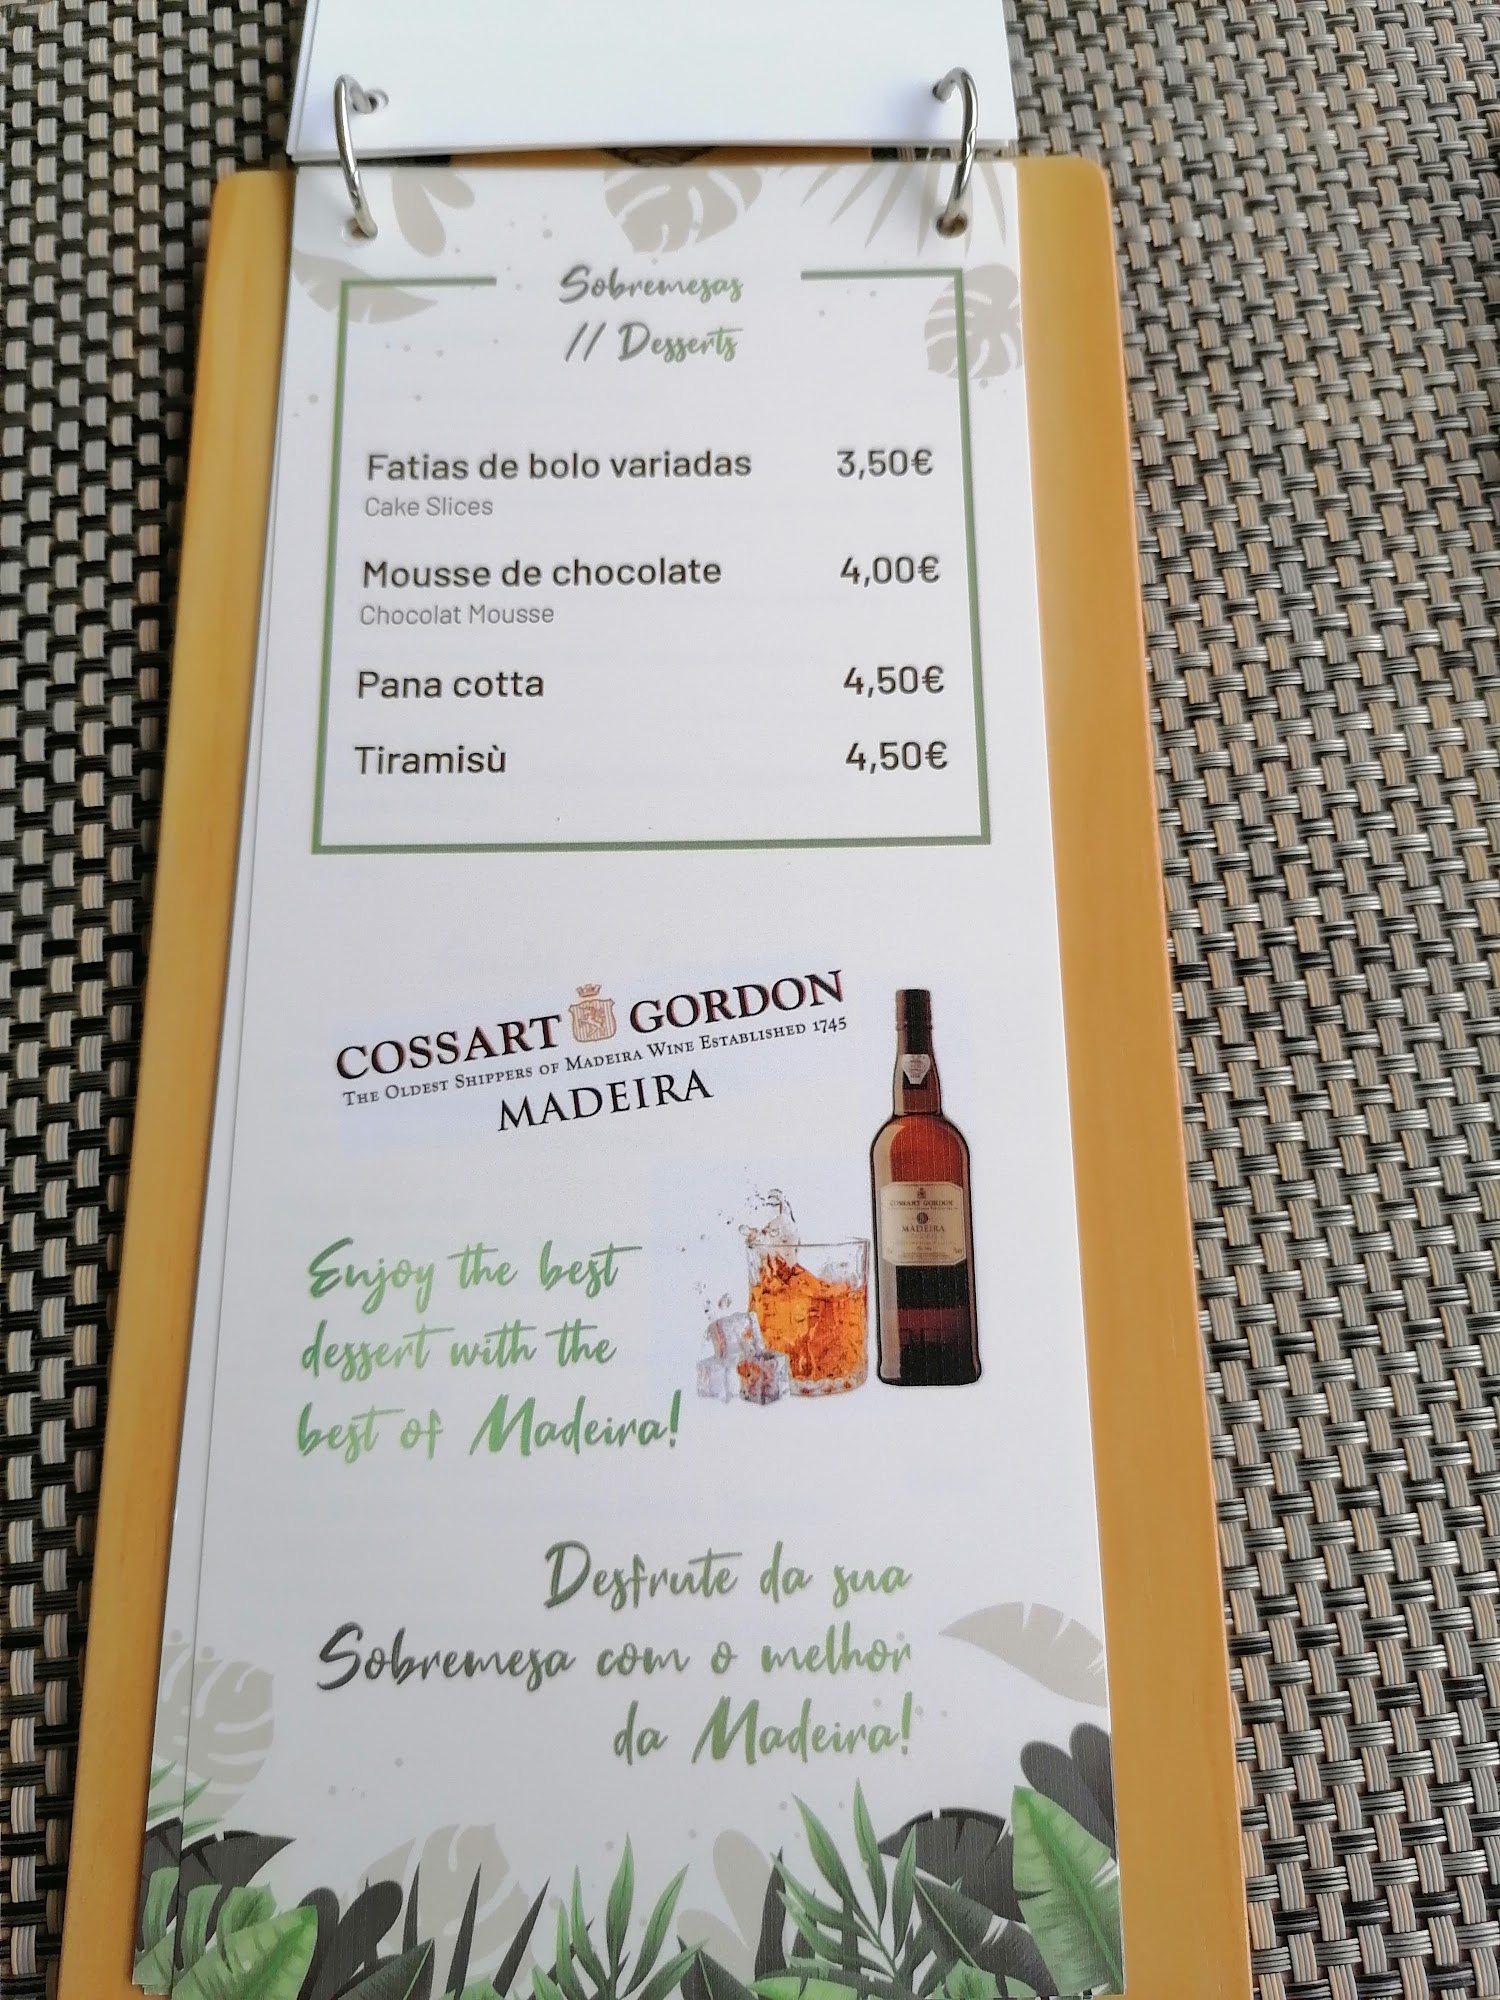 Sobremesas
// Desserts
Fatias de bolo variadas 3,50€
Cake Slices
Mousse de chocolate 4,00€
Chocolat Mousse
Pana cotta 4,50€
Tiramisù 4,50€
COSSART GORDON
THE OLDEST SHIPPERS OF MADEIRA WINE ESTABLISHED 1745
MADEIRA
COSSART GORDON
MADEIRA
Enjoy the best
dessert with the
best of Madeira!
Desfrute da sua
Sobremesa com o melhor
da Madeira!